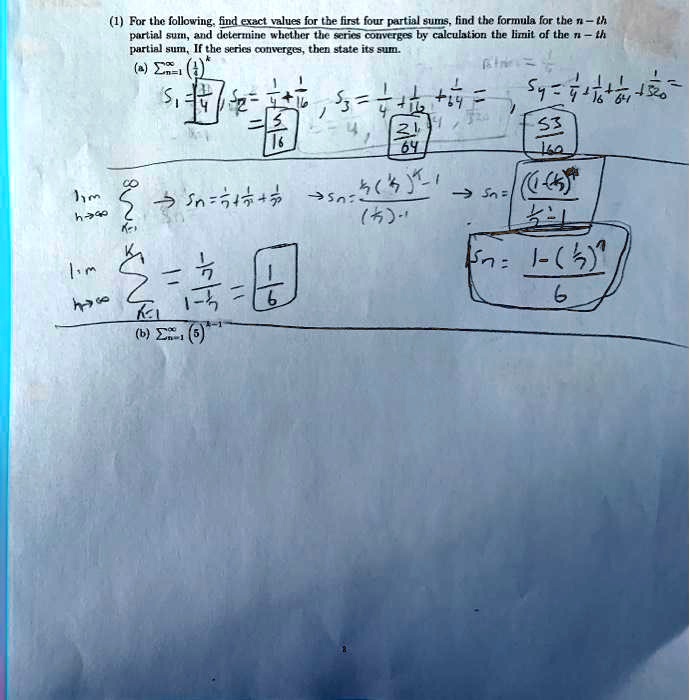 (1) For the following, find exact values for the first four partial sums, find the formula for the n − th
partial sum, and determine whether the series converges by calculation the limit of the n − th
partial sum, If the series converges, then state its sum.
(a) Σ∞n=1 (1/4)^k
S1 = 1/4 , S2 = 1/4 + 1/16 , S3 = 1/4 + 1/16 + 1/64 = , S4 = 1/4 + 1/16 + 1/64 + 1/320 =
= 5/16 21/64 53/160
lim n→∞ ∞ Σ K=1 → Sn = 1/7 + 1/7 + 1/7 → Sn = → Sn =
lim n→∞ Σ K=1 = 1/7 / 1-1/7 = 1/6 Sn = 1-(1/7)^n / 6
(b) Σ∞n=1 (5)^k−1